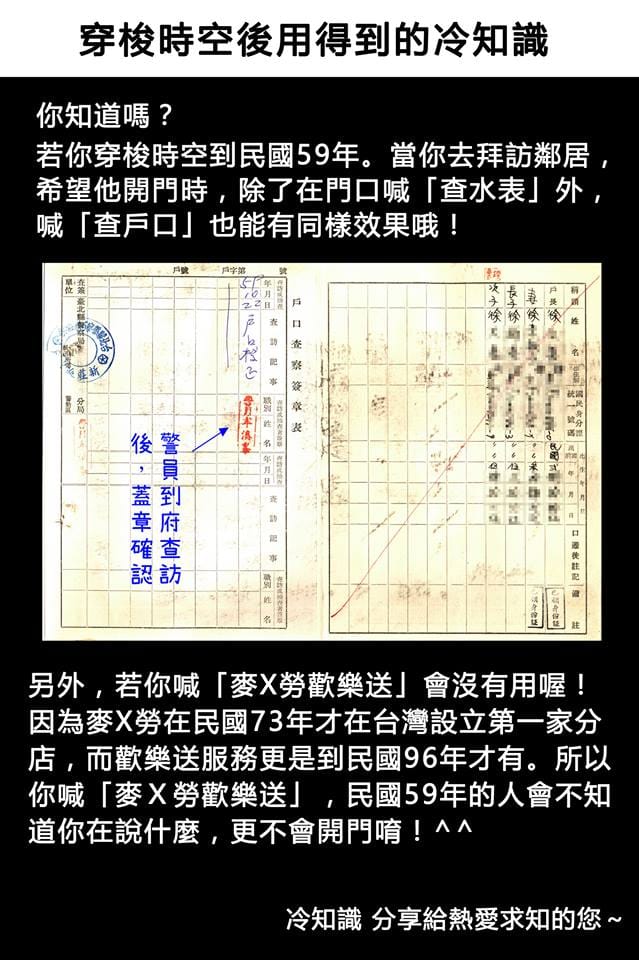 穿梭時空後用得到的冷知識
你知道嗎？
若你穿梭時空到民國59年。當你去拜訪鄰居，
希望他開門時，除了在門口喊「查水表」外，
喊「查戶口」也能有同樣效果哦！
戶號 戶字第 號
戶口查察簽章表
年月日
查訪記事
職別 姓名
年月日
查訪記事
職別 姓名
59 10 22
戶口校正
查察單位
臺北縣警察局
分局
警員到府查訪
後，蓋章確認
稱謂
姓名
國民身分證統一號碼
出生年月日
備註
戶長 徐
妻 徐
長子 徐
次子 徐
民國
已領身份証
已領身份証
另外，若你喊「麥X勞歡樂送」會沒有用喔！
因為麥X勞在民國73年才在台灣設立第一家分
店，而歡樂送服務更是到民國96年才有。所以
你喊「麥Ｘ勞歡樂送」，民國59年的人會不知
道你在說什麼，更不會開門唷！^^
冷知識 分享給熱愛求知的您～